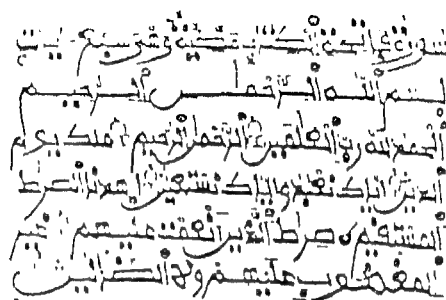 سورة فاتحة الكتب سبع ايت
بسم الله الرحمن الرحيم
الحمد لله رب العلمين الرحمن الرحيم ملك يوم
الدين اياك نعبد واياك نستعين اهدنا الصرط
المستقيم صرط الذين انعمت عليهم غير
المغضوب عليهم ولا الضالين